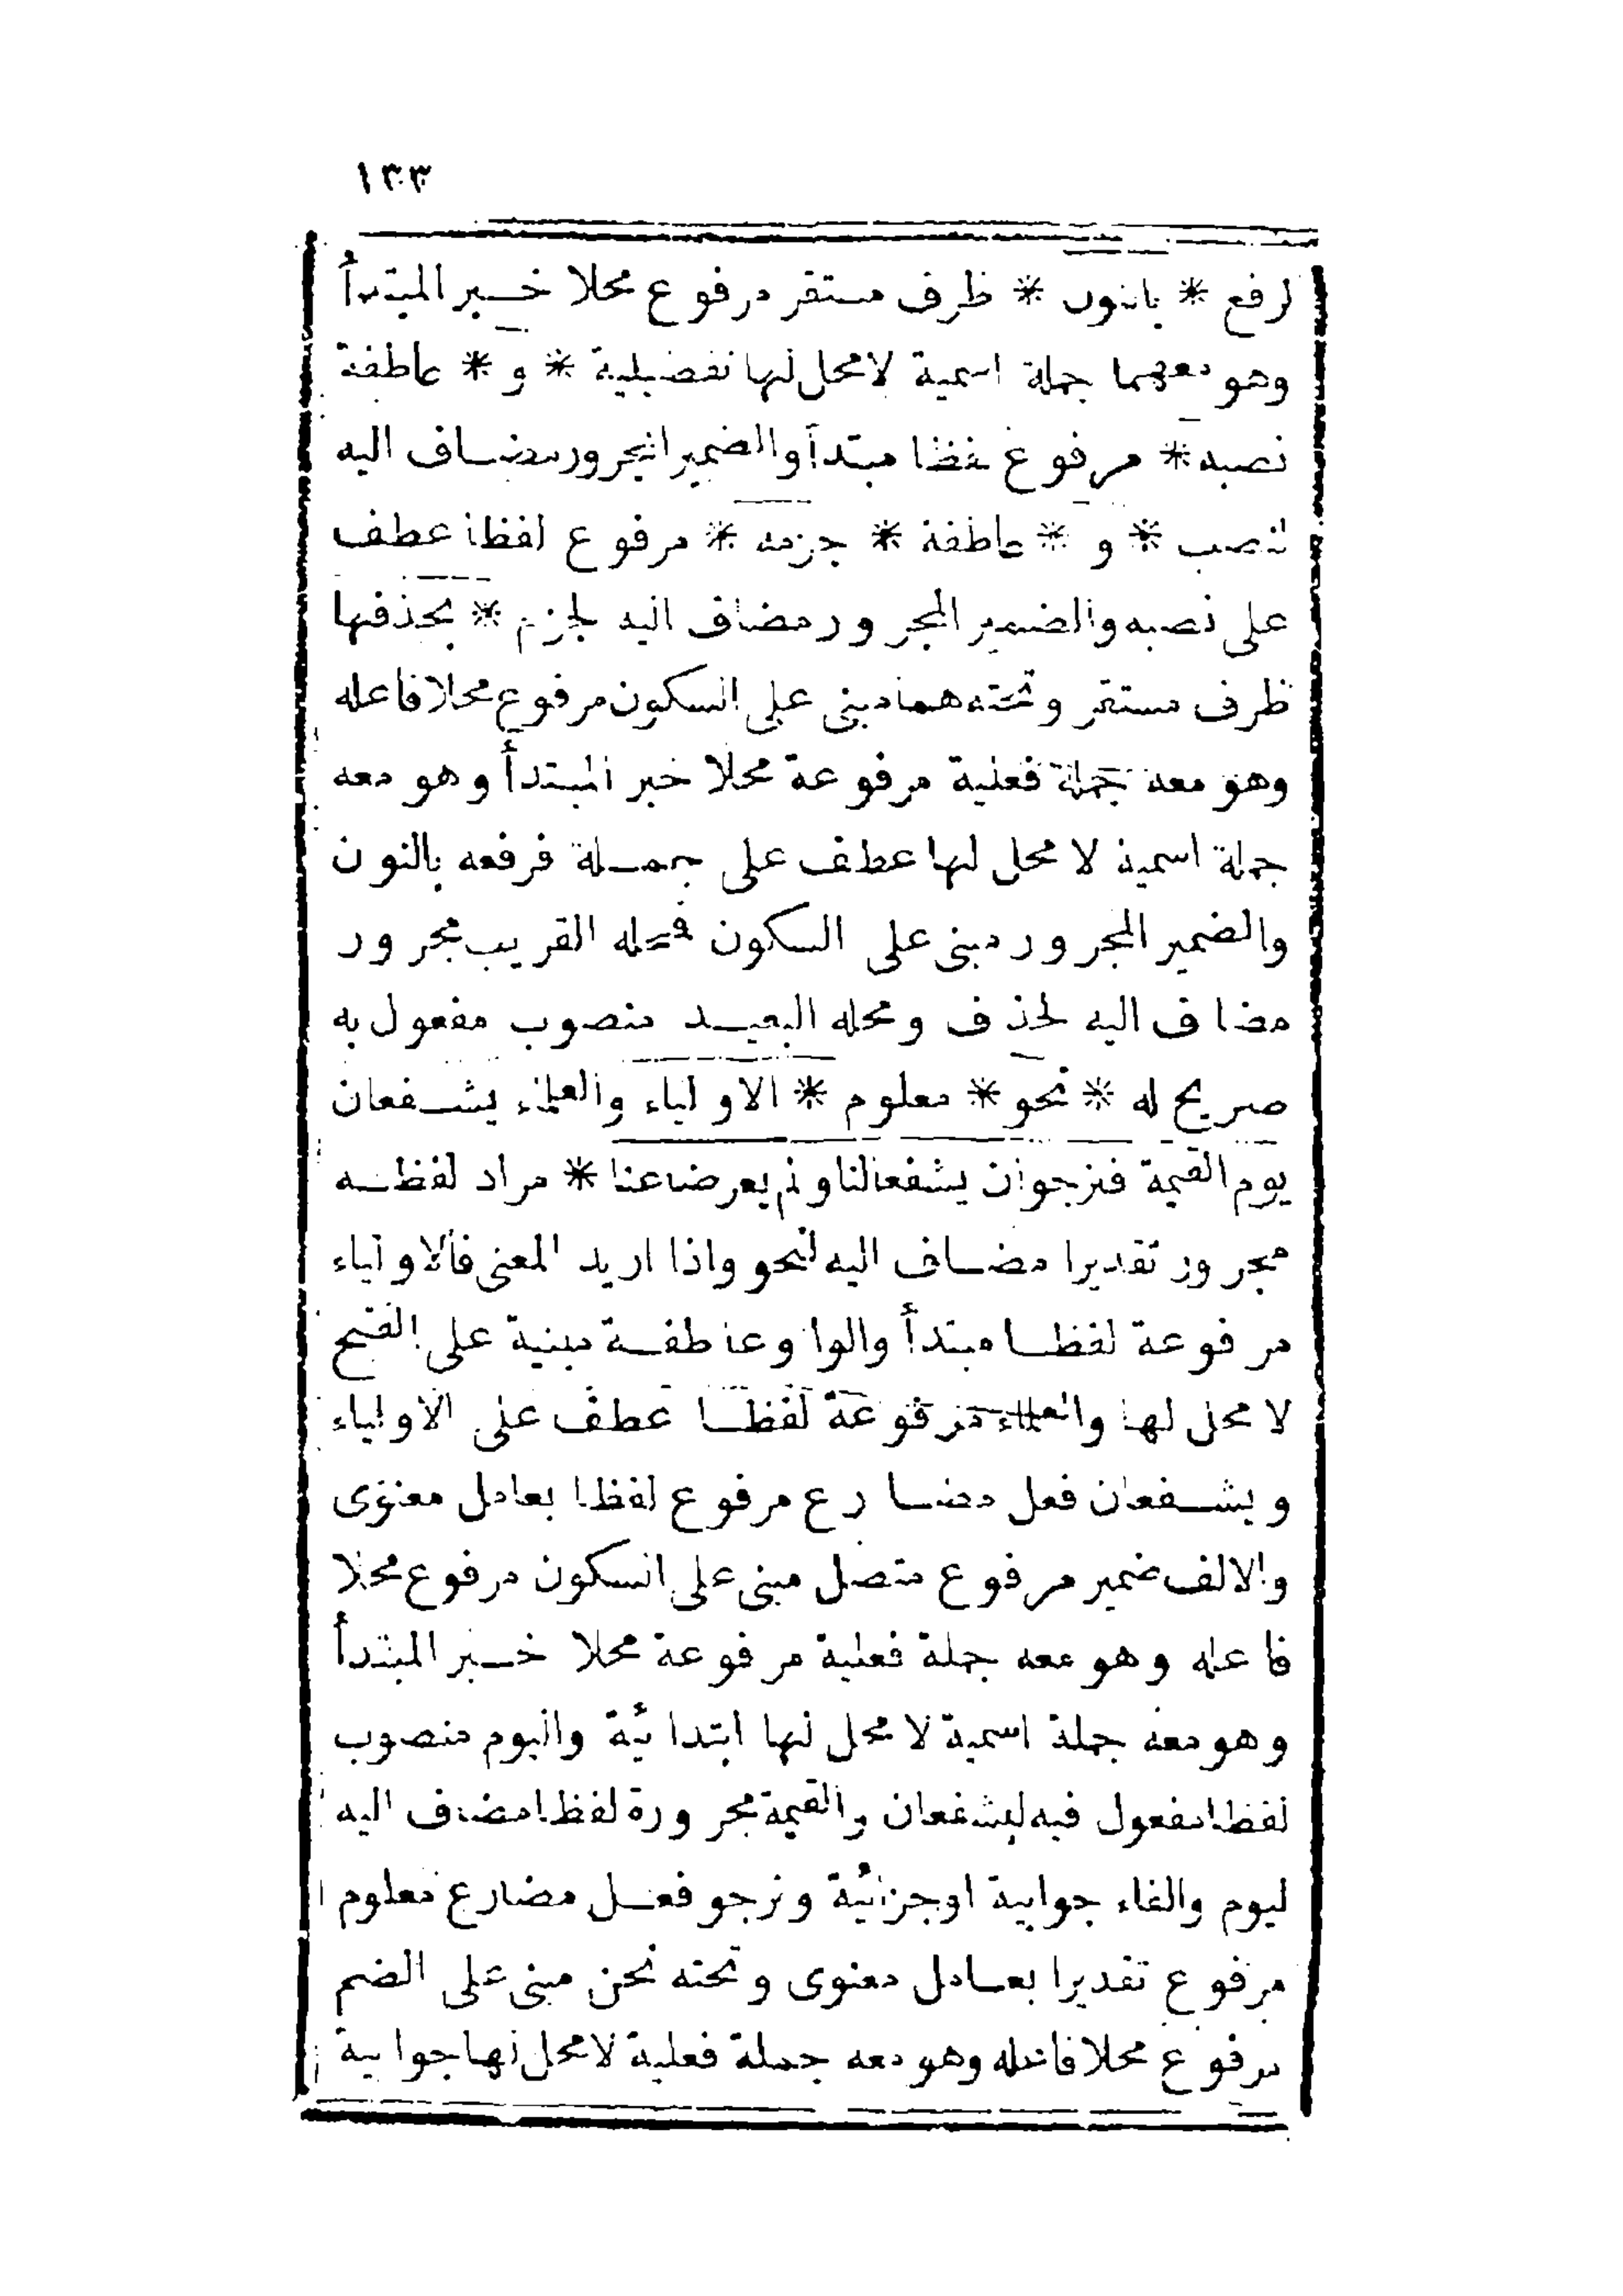 ١٣٣
لرفع * بالنون * ظرف مستقر مرفوع محلا خبر المبتدأ
وهو معهما جملة اسمية لا محل لها تفصيلية * و * عاطفة
نصبه * مرفوع لفظا مبتدأ والضمير المجرور مضاف اليه
لنصب * و * عاطفة * جزمه * مرفوع لفظا عطف
على نصبه والضمير المجرور مضاف اليه لجزم * بحذفها
ظرف مستقر وتحته هما مبنى على السكون مرفوع محلا فاعله
وهو معه جملة فعلية مرفوعة محلا خبر المبتدأ وهو معه
جملة اسمية لا محل لها عطف على جملة فرفعه بالنون
والضمير المجرور مبنى على السكون فمحله القريب مجرور
مضاف اليه لحذف ومحله البعيد منصوب مفعول به
صريح له * نحو * معلوم * الاولياء والعلماء يشفعان
يوم القيمة فنرجوا ان يشفعا لنا ولم يعرضا عنا * مراد لفظه
مجرور تقديرا مضاف اليه لنحو واذا اريد المعنى فالاولياء
مرفوعة لفظا مبتدأ والواو عاطفة مبنية على الفتح
لا محل لها والعلماء مرفوعة لفظا عطف على الاولياء
ويشفعان فعل مضارع مرفوع لفظا بعامل معنوى
والالف ضمير مرفوع متصل مبنى على السكون مرفوع محلا
فاعله وهو معه جملة فعلية مرفوعة محلا خبر المبتدأ
وهو معه جملة اسمية لا محل لها ابتدائية واليوم منصوب
لفظا مفعول فيه ليشفعان والقيمة مجرورة لفظا مضاف اليه
ليوم والفاء جوابية او جزائية ونرجو فعل مضارع معلوم
مرفوع تقديرا بعامل معنوى وتحته نحن مبنى على الضم
مرفوع محلا فاعله وهو معه جملة فعلية لا محل لها جوابية